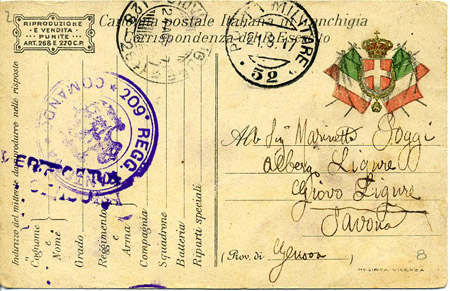 RIPRODUZIONE
E VENDITA
PUNITE
ART. 268 E 270 C.P.
Cartolina postale Italiana in franchigia
Corrispondenza del R. Esercito
POSTA MILITARE
21.8.17
52
209° REGG.
COMANDO
Indirizzo del mittente da riprodurre nelle risposte
Cognome
e
Nome
Grado
Reggimento
e
Arma
Compagnia
Squadrone
Batteria
Riparti speciali
Poggi
Albergo Ligure
Giovo Ligure
Savona
(Prov. di Genova
8